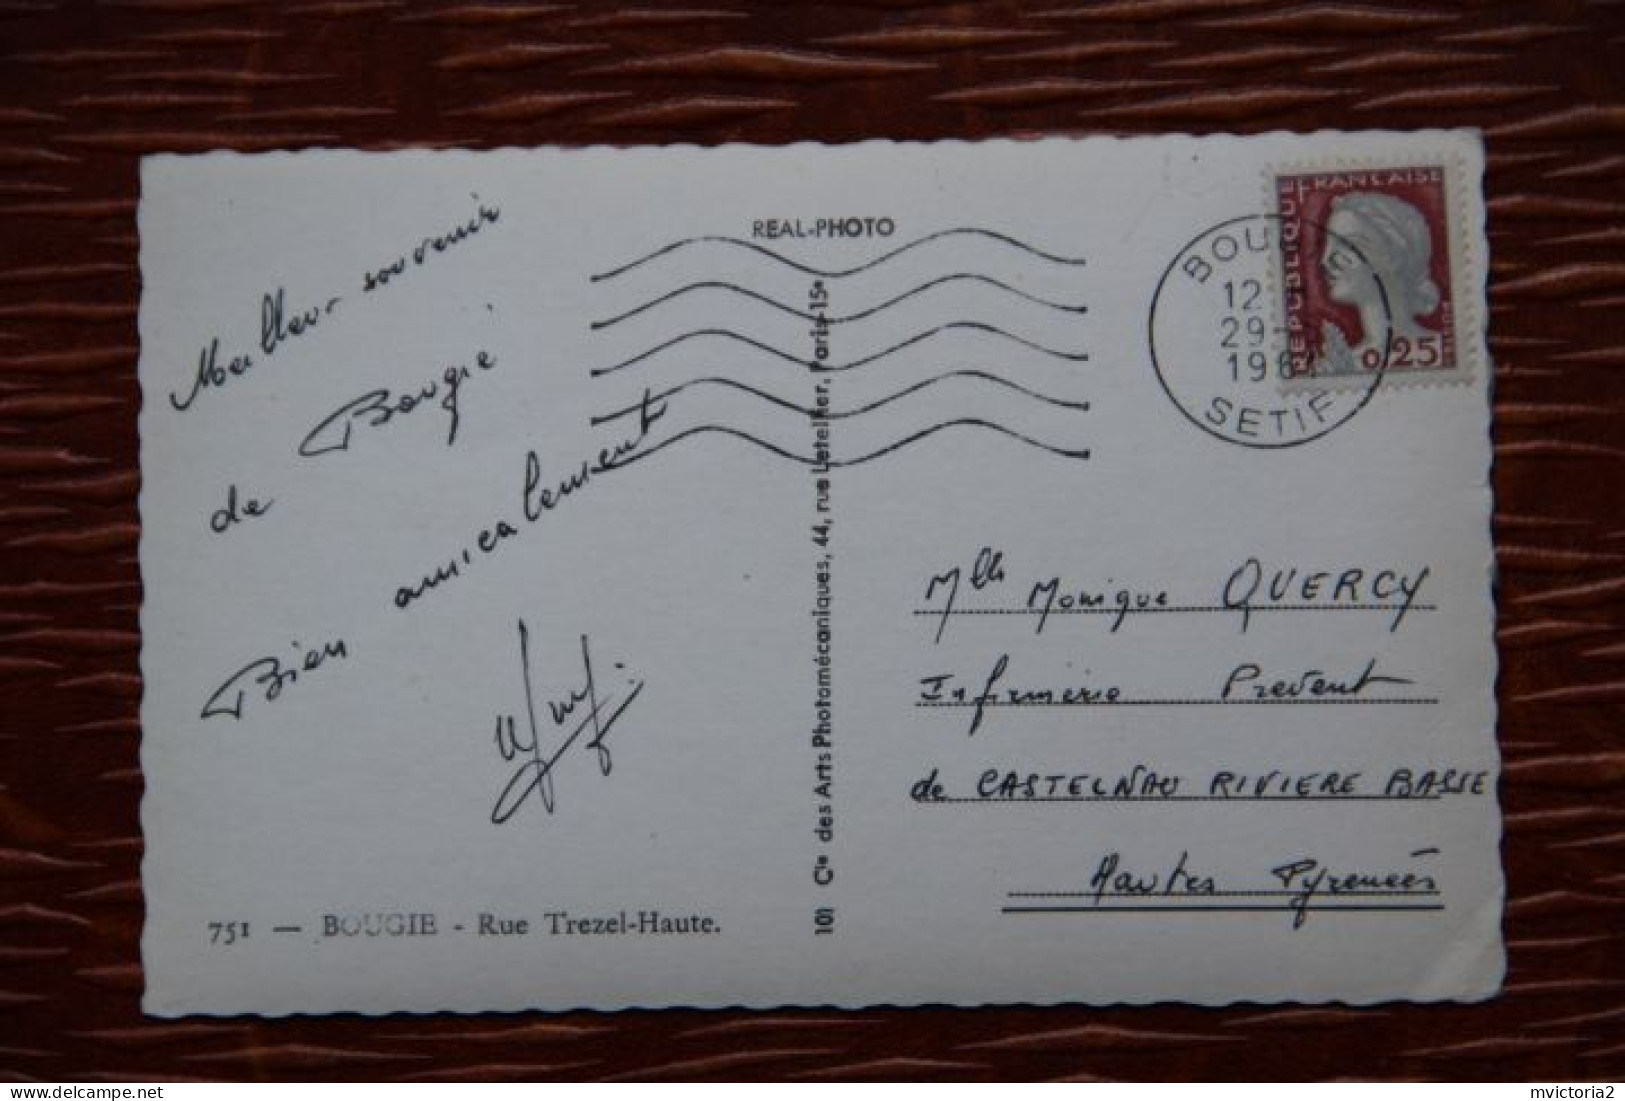 REAL-PHOTO
Meilleur souvenir
de Bougie
Bien amicalement
751 — BOUGIE - Rue Trezel-Haute.
101 Cie des Arts Photomécaniques, 44, rue Letellier, Paris-15e
REPUBLIQUE FRANÇAISE
0,25
BOUGIE
12
29
SETIF
Mlle Monique QUERCY
Infirmerie Prevent
de CASTELNAU RIVIERE BASSE
Hautes Pyrenées
delcampe.net
mvictoria2